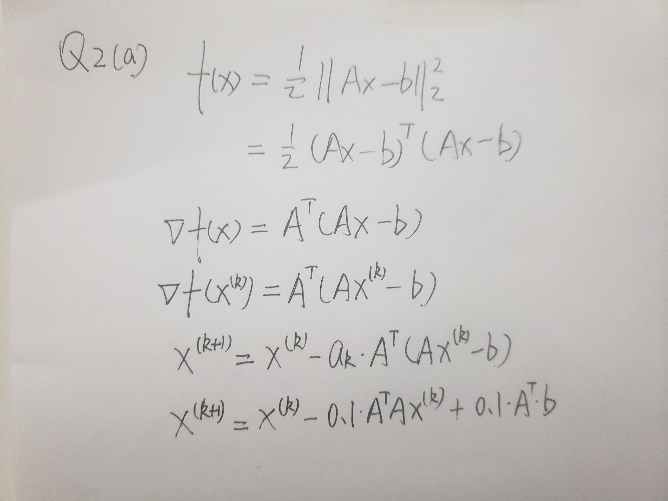 Q2(a) f(x) = 1/2 ||Ax-b||₂²
= 1/2 (Ax-b)ᵀ(Ax-b)
∇f(x) = Aᵀ(Ax-b)
∇f(x⁽ᵏ⁾) = Aᵀ(Ax⁽ᵏ⁾-b)
x⁽ᵏ⁺¹⁾ = x⁽ᵏ⁾ - aₖ·Aᵀ(Ax⁽ᵏ⁾-b)
x⁽ᵏ⁺¹⁾ = x⁽ᵏ⁾ - 0.1·AᵀAx⁽ᵏ⁾ + 0.1·Aᵀ·b